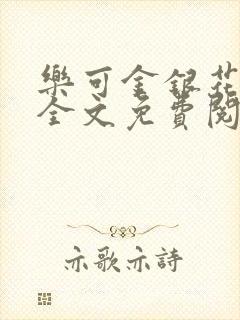 樂可金銀花
全文免費閱
亦歌亦詩